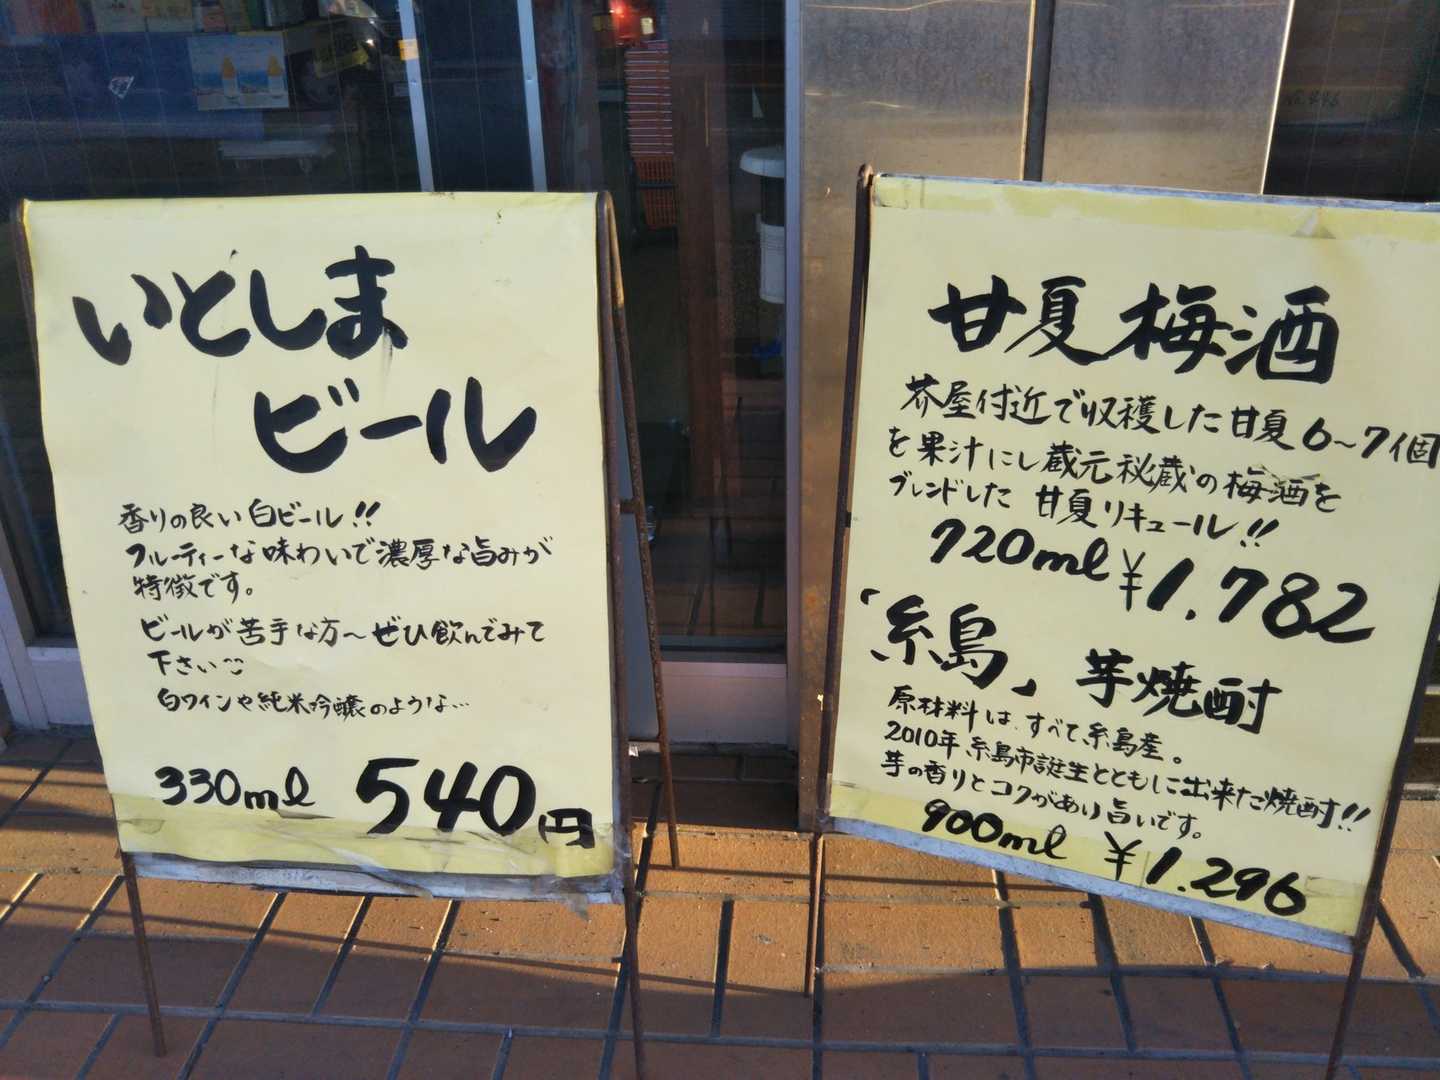 いとしま
ビール
香りの良い白ビール!!
フルーティーな味わいで濃厚な旨みが
特徴です。
ビールが苦手な方～ぜひ飲んでみて
下さい
白ワインや純米吟醸のような…
330ml 540円
甘夏梅酒
芥屋付近で収穫した甘夏6～7個
を果汁にし蔵元秘蔵の梅酒を
ブレンドした 甘夏リキュール!!
720ml ¥1.782
「糸島」芋焼酎
原材料は、すべて糸島産。
2010年 糸島市誕生とともに出来た焼酎!!
芋の香りとコクがあり旨いです。
900ml ¥1.296